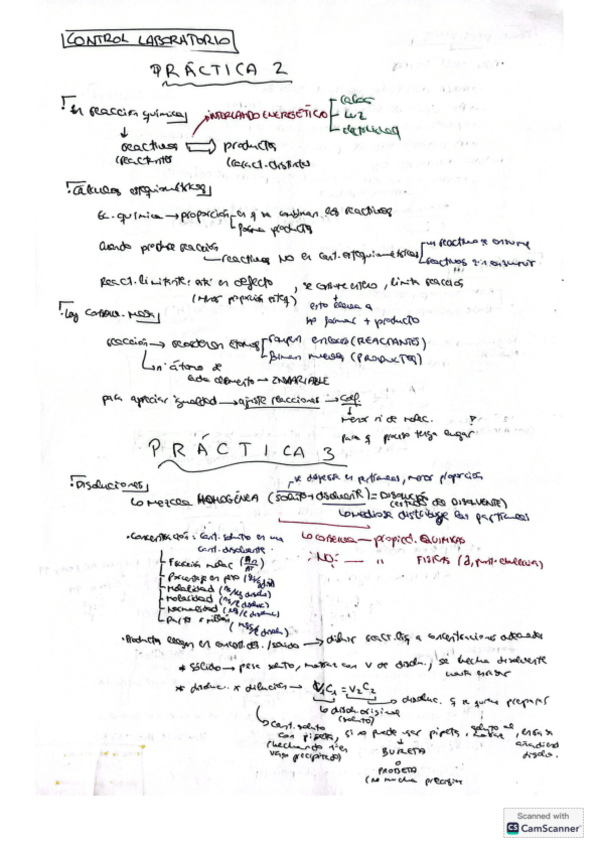 CONTROL LABORATORIO
PRÁCTICA 2
En reacción química
INTERCAMBIO ENERGÉTICO
calor
luz
electricidad
reactivos productos
(reactantes (caract. distintas
Cálculos estequiométricos
Ec. química → proporción en q se combinan los reactivos
forman productos
Cuando produce reacción
reactivos NO en cant. estequiométricas
un reactivo se consume
reactivos sin consumir
React. limitante: está en defecto, se consume entero, limita reacción
(Menor proporción esteq.)
esto lleva a
no formar + producto
Ley conserv. masa
reacción → reordenan átomos
rompen enlaces (REACTANTES)
forman nuevos (PRODUCTOS)
nº átomos de
cada elemento → INVARIABLE
para apreciar igualdad → ajuste reacciones → coef.
Menor nº de molec.
para q proceso tenga lugar
PRÁCTICA 3
se dispersa en partículas, menor proporción
Disoluciones
Mezcla HOMOGÉNEA (soluto + disolvente) = DISOLUCIÓN
(estado del DISOLVENTE)
distribuye las partículas
conserva — propied. QUÍMICAS
NO: — " FÍSICAS
Concentración: cant. soluto en una
cant. disolvente
Fracción molar
Porcentaje en peso
Molalidad
Molaridad
Normalidad
Partes x millón
Productos
diluir react. liq a concentraciones adecuadas
* sólido → pesa soluto, matraz con V de disolu., se hecha disolvente
hasta enrasar
* disoluc. x dilución → V₁C₁ = V₂C₂
disoluc. q se quiere preparar
disol. original
(soluto)
Cant. soluto
con pipeta, si no puede usar pipeta, soluto al
matraz, enrasa
añadiendo
disolv.
(hechando
vaso precipitado)
BURETA
o
PROBETA
(no mucha precisión
Scanned with
CS CamScanner